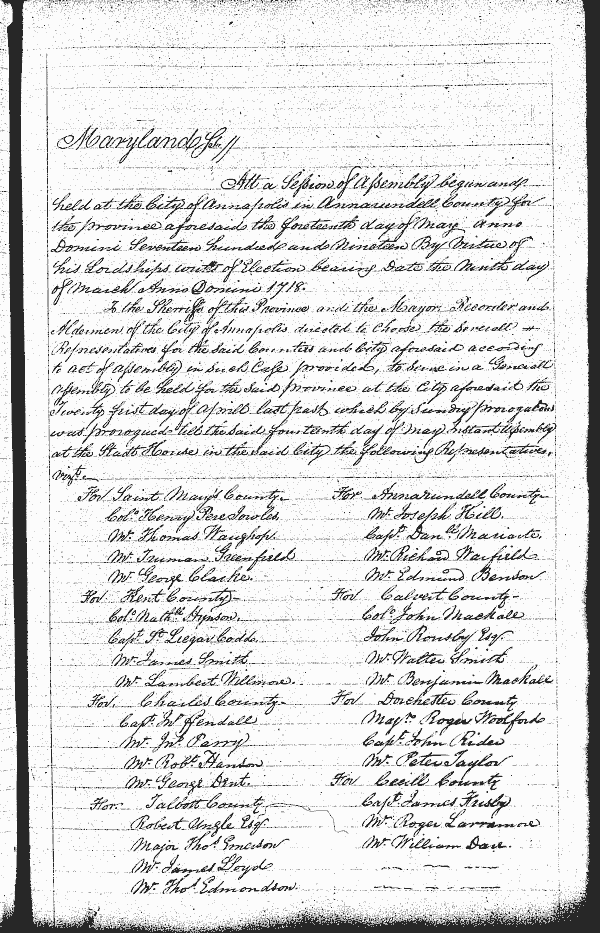 Maryland Sct. //
Att a Session of Assembly begun and
held at the City of Annapolis in Annarundell County for
the province aforesaid the foreteenth day of May Anno
Domini Seventeen hundred and Nineteen By Virtue of
his Lordships writts of Election bearing Date the Ninth day
of March Anno Domini 1718.
To the Sherriffs of this Province and the Mayor Recorder and
Aldermen of the City of Annapolis directed to Choose the Severall
Representatives for the said Counties and City aforesaid according
to act of assembly in such Case provided, to serve in a Generall
Assembly to be held for the said province at the City aforesaid the
Twenty first day of April last past which by Sundry prorogations
was prorogued till the said fourteenth day of May instant Assembly
at the Stadt House in the said City the following Representatives,
vizt.
For Saint Mary's County
Colo. Henry Pere Jowles,
Mr. Thomas Waughop
Mr. Truman Greenfield
Mr. George Clarke.
For Kent County
Colo. Nathll. Hynson.
Capt. St. Legar Codd.
Mr. James Smith
Mr. Lambert Willmore.
For. Charles County
Capt. Jno. Fendall
Mr. Jno. Parry
Mr. Robt. Hanson
Mr. George Dent.
For. Talbott County
Robert Ungle Esqr.
Major Thos. Emerson
Mr. James Lloyd
Mr. Thos. Edmondson
For Annarundell County
Mr. Joseph Hill.
Capt. Danll. Mariarte.
Mr. Richard Warfield
Mr. Edmund Benson
For Calvert County
Colo. John Mackall
John Rousby Esqr.
Mr. Walter Smith
Mr. Benjamin Mackall
For Dorchetter County
Majr. Roger Woolford
Capt. John Rider
Mr. Peter Taylor
For Cecill County
Capt. James Frisby
Mr. Roger Larramore
Mr. William Dare.